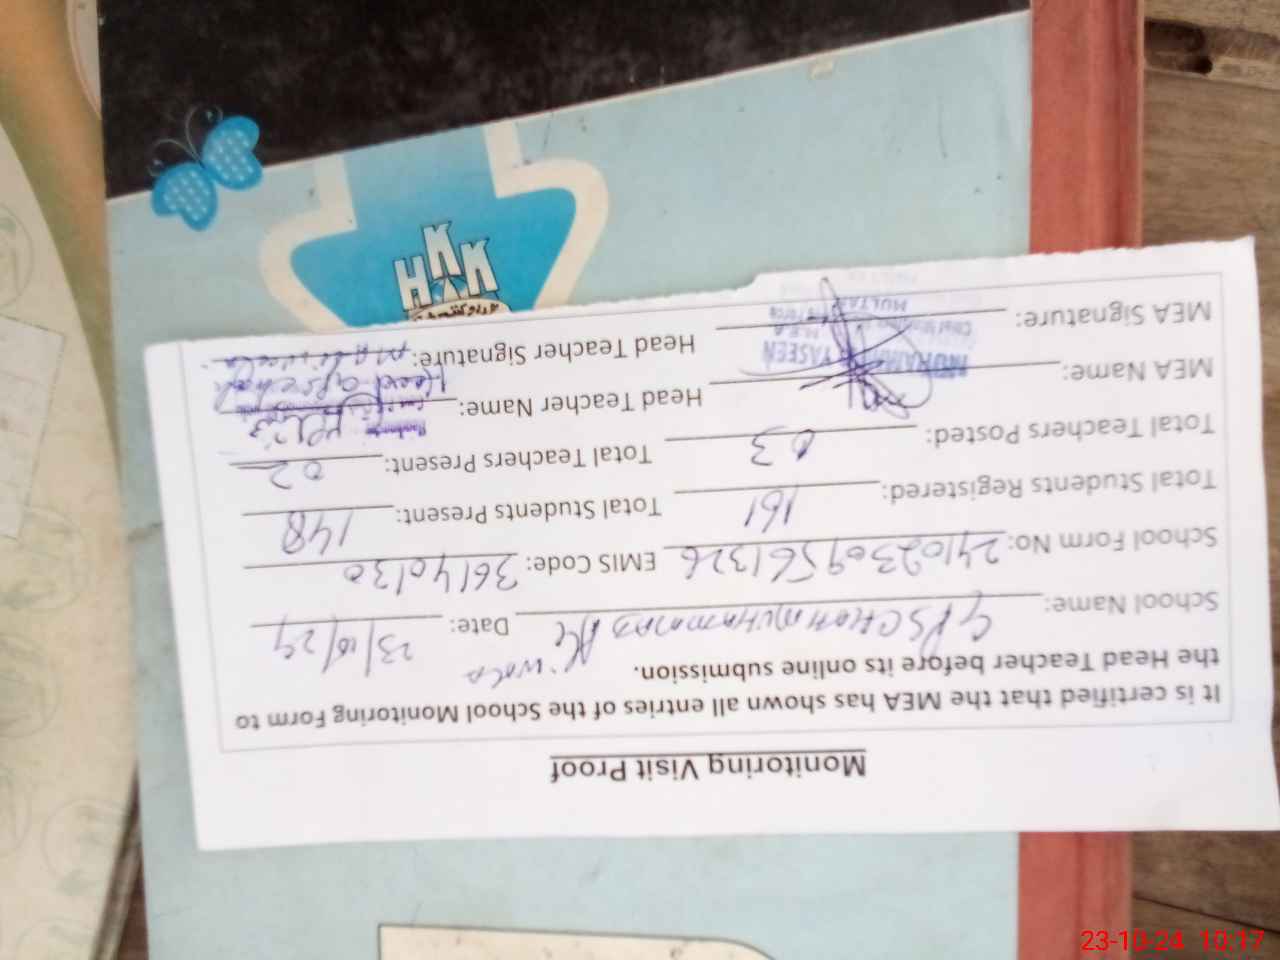 Monitoring Visit Proof
It is certified that the MEA has shown all entries of the School Monitoring Form to
the Head Teacher before its online submission.
School Name: GPS CHAH MUHAMMAD Ali wala Date: 23/10/24
School Form No: 24102309561326 EMIS Code: 36140130
Total Students Registered: 161 Total Students Present: 148
Total Teachers Posted: 03 Total Teachers Present: 02
MEA Name: MUHAMMAD YASEEN Head Teacher Name:
MEA Signature: Head Teacher Signature:
M.E.A
MULTAN
HKK
23-10-24 10:17